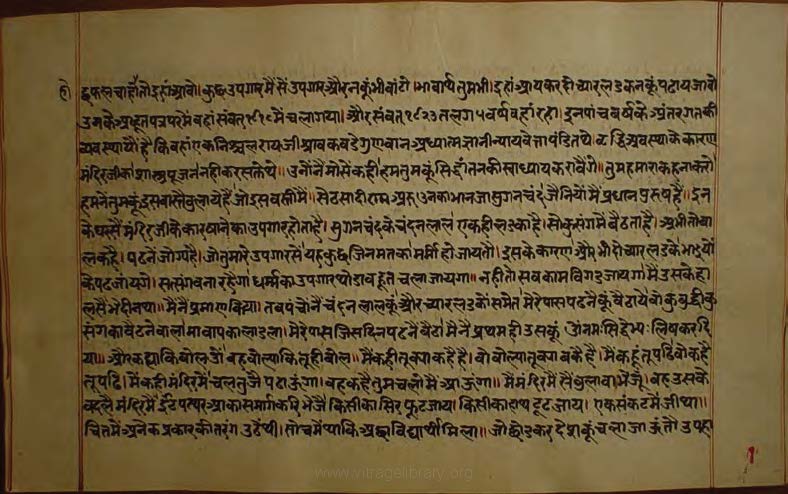 हो
द्रूफल चाहो तो इहां आवो। कुछ उपगार मैं सैं उपगार औरन कूं भी बांटो। भावार्थ तुम भी। इहां आय कर दो च्यार लडकन कूं पढाय जावो
उनके अद्भुत पत्र पर मैं वहां संवत् १९१८ में चला गया॥ और संवत् १९२३ तलग ५ वर्ष वहां रहा। इन पांच बर्ष के अंतरगत की
व्यवस्था यौं है कि वहां एक निश्चलरायजी श्रावक बडे गुणवान अध्यात्म ज्ञानी न्यायवेत्ता पंडित थे। वृद्धि अवस्था के कारण
मंदिरजी का शास्त्र पूजन नही कर सक्ते थे। उनौंनैं मोसैं कही हम तुम कूं सिद्धांतन की स्वाध्याय करावैंगे॥ तुम हमारा कहना करो
हमनैं तुमकूं इस वास्तै बुलाये हैं जो इस वस्ती मैं। सेठ सादीराम अरु उनका भानजा सुगनचंद जैनियों मैं प्रधान पुरुष हैं॥ इन
के घरसैं मंदिरजी के कारखाने का उपगार होता है। सुगनचंद के चंदनलाल एक ही लडका है। सो कुसंग मैं बैठता है। अभी तो बा
लक है। पढने जोग्य है। जो तुमारे उपगार सैं यह कुछ जिनमत का मर्मी हो जाय तो। इसके कारण और भी दो च्यार लडके भाइयों
के पढ जायगे। सतसंग बना रहैगा धर्म का उपगार थोडा बहूत चला जायगा॥ नही तो सब काम विगड जायगा मैं उसके हा
लसैं भेदी न था। मैंनैं प्रमाण किया। तब पंचौंनैं चंदनलाल कूं और च्यार लडकों समेत मेरे पास पढनैं कूं बैठाये वो कुबुद्धी कु
संग का बैठने वाला मा बाप का लाडला। मेरे पास जिस दिन पढनें बैठा मैंनैं प्रथम ही उसकूं ॐ नमः सिद्धेभ्यः लिष कर दि
या॥ और कह्या कि बोल ॐ वह बोल्या कि तूही बोल॥ मैं कही तू क्या कहै है। वो बोल्या तू क्या बकै है। मैं कहूं तू पढि वो कहै
तू पढि। मैं कही मंदिर मैं चल तुजै पढाऊंगा। वह कहै तुम चलौ मैं आऊंगा॥ मैं मंदिर मैं सैं बुलावा भेजूं। वह उसके
बदलै मंदिर मैं ईंट पत्थर आकासमार्ग करि भेजै। किसी का सिर फूट जाय। किसी का हाथ टूट जाय। एक संकट मैं जी था॥
चित मैं अनेक प्रकार की तरंग उठैं थी। सोच मैं था कि अछा विद्यार्थी मिला॥ जो छोड कर देश कूं चला जाऊं तो उपहा
१
www.vitragelibrary.org